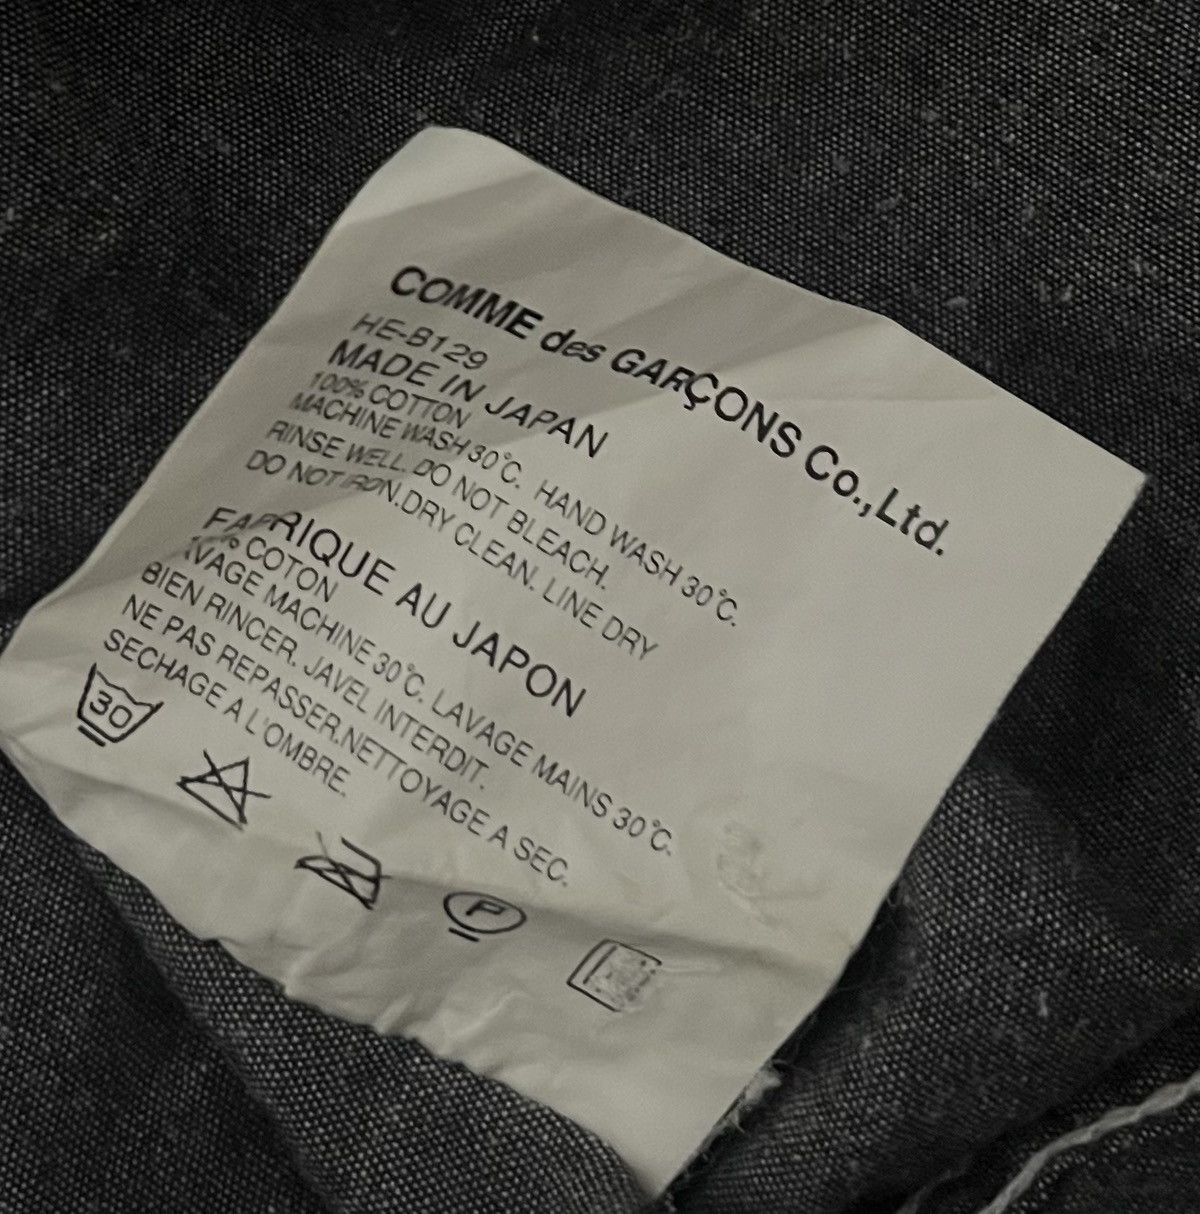 COMME des GARÇONS Co.,Ltd.
HE-B129
MADE IN JAPAN
100% COTTON
MACHINE WASH 30°C. HAND WASH 30°C.
RINSE WELL. DO NOT BLEACH.
DO NOT IRON.DRY CLEAN. LINE DRY
FABRIQUE AU JAPON
COTON
LAVAGE MACHINE 30°C. LAVAGE MAINS 30°C.
BIEN RINCER. JAVEL INTERDIT.
NE PAS REPASSER.NETTOYAGE A SEC.
SECHAGE A L'OMBRE.
30
P